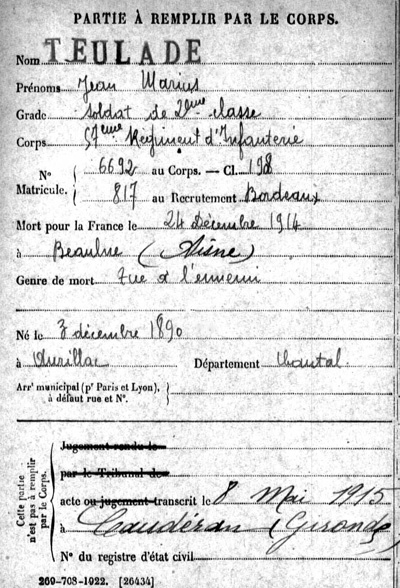 PARTIE À REMPLIR PAR LE CORPS.
Nom TEULADE
Prénoms Jean Marius
Grade soldat de 2ème classe
Corps 57ème Régiment d'Infanterie
N° 6692 au Corps. — Cl.
Matricule. 817 au Recrutement Bordeaux
Mort pour la France le 24 Décembre 1914
à Beaulne (Aisne)
Genre de mort Tué à l'ennemi
Né le 3 décembre 1890
à Aurillac Département Cantal
Arr' municipal (p' Paris et Lyon),
à défaut rue et N°.
Cette partie
n'est pas à remplir
par le Corps.
Jugement rendu le
par le Tribunal de
acte ou jugement transcrit le 8 Mai 1915
à Caudéran (Gironde)
N° du registre d'état civil
269-708-1922. [26434]